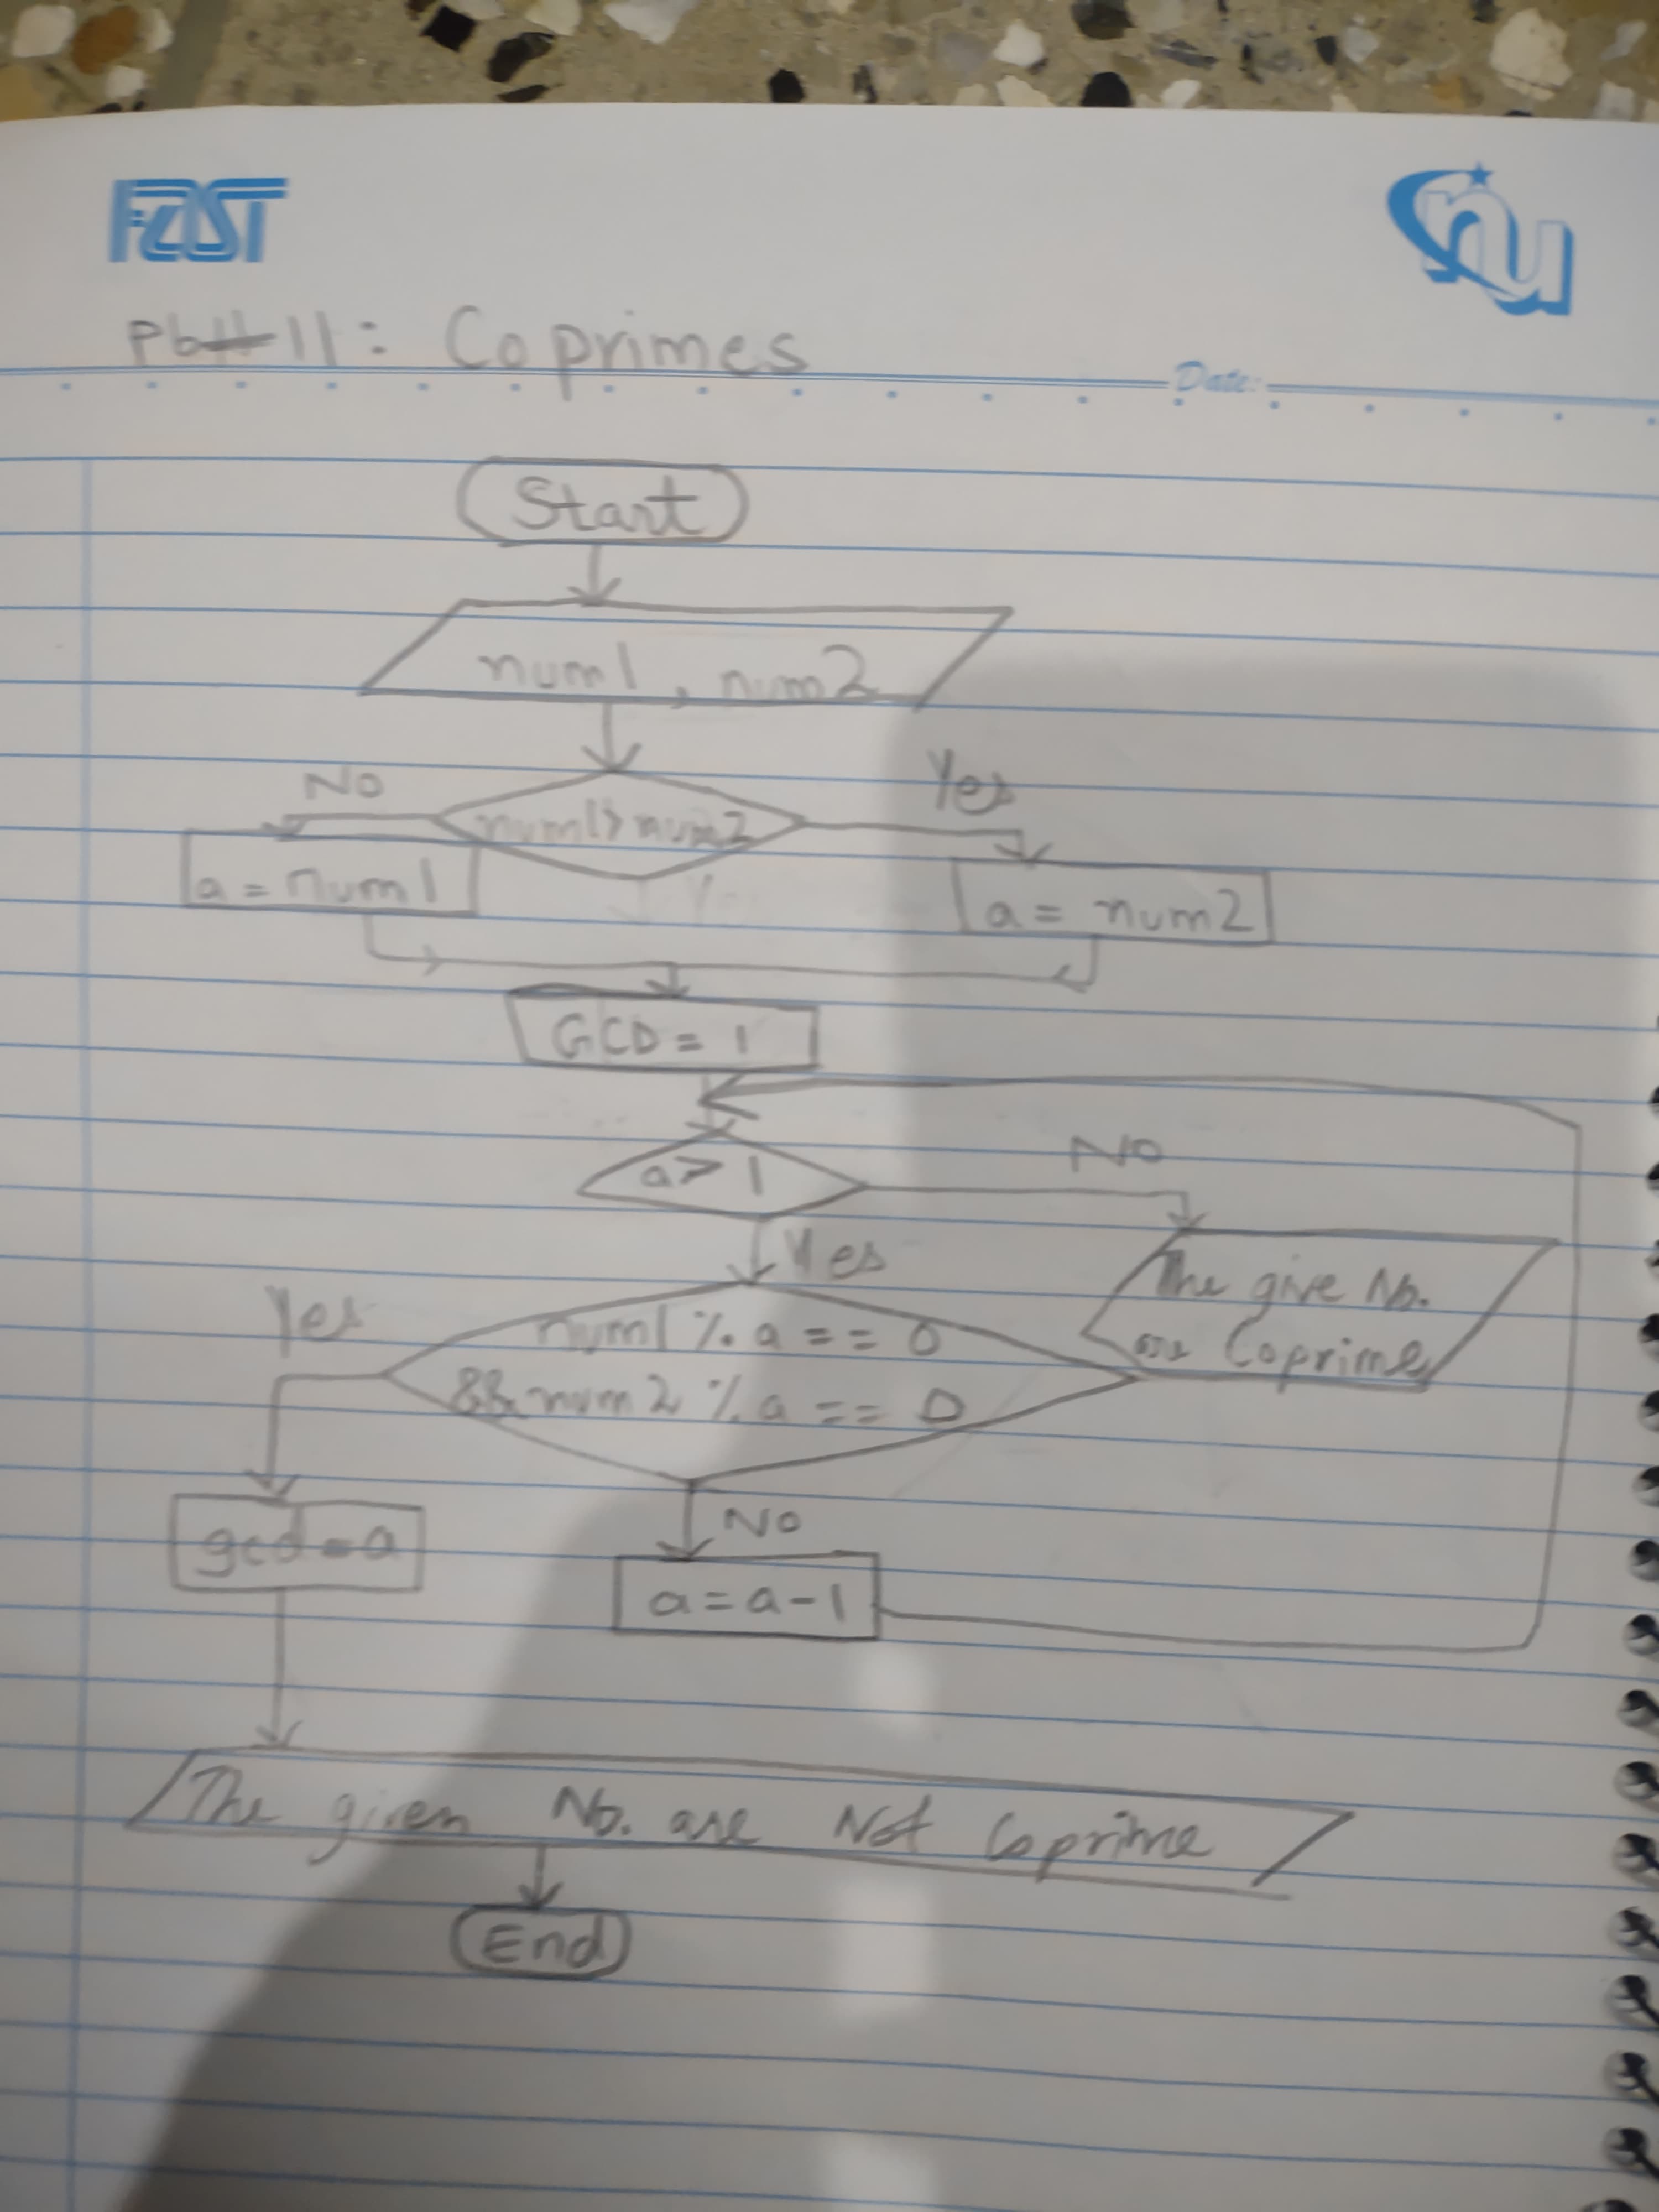 FAST
nu
Pb#11: Coprimes
Date:
Start
num1, num2
No
Yes
num1 > num2
a = num1
a = num2
GCD = 1
No
a > 1
Yes
The give No.
are Coprime
Yes
num1 % a == 0
&& num2 % a == 0
No
gcd = a
a = a - 1
The given No. are Not Coprime
End